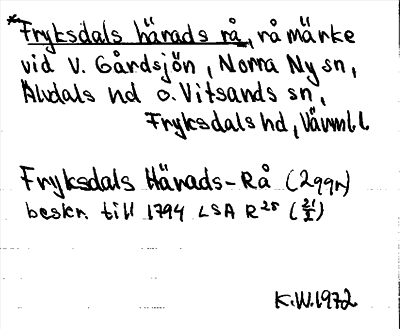 *Fryksdals härads rå, råmärke
vid V. Gårdsjön, Norra Ny sn,
Älvdals hd o. Vitsands sn,
Fryksdals hd, Värml.
Fryksdals Härads-Rå (299r)
beskr. till 1794 LSA R 25 (21/I)
K.W. 1972